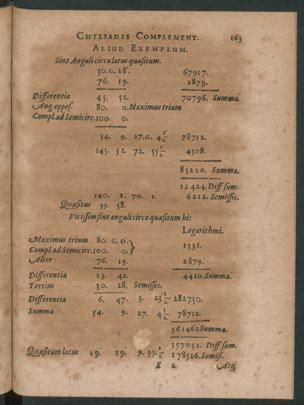 CHILIADIS COMPLEMENT. 163
ALIUD EXEMPLUM.
Sint Anguli circa latus quæsitum.
30. G. 28. 67917.
76. 19. 2879.
Differentia 45. 51. 70796. Summa.
Aug. oppos. 80. 0. Maximus trium
Compl. ad Semicirc. 100. 0.
54. 9. 27. G. 4½ 78712.
145. 51. 72. 55½ 4508.
83220. Summa.
12424. Diff. sum.
140. 2. 70. 1. 6212. Semissis.
Quæsitus 39. 58.
Vicissim sint anguli circa quæsitum hi:
Logarithmi.
Maximus trium 80. G. 0.
Compl. ad Semicirc. 100. 0. } 1531.
Alter 76. 19. 2879.
Differentia 23. 41. 4410. Summa.
Tertius 30. 28. Semisses.
Differentia 6. 47. 3. 23½ 282750.
Summa 54. 9. 27. 4½ 78712
361462 Summa.
357052. Diff. sum.
Quæsitum latus 19. 19. 9. 39½ 178526. Semiss.
X 2